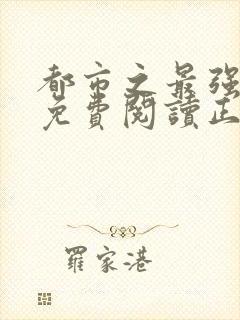 都市之最強
免費閱讀正
羅家港